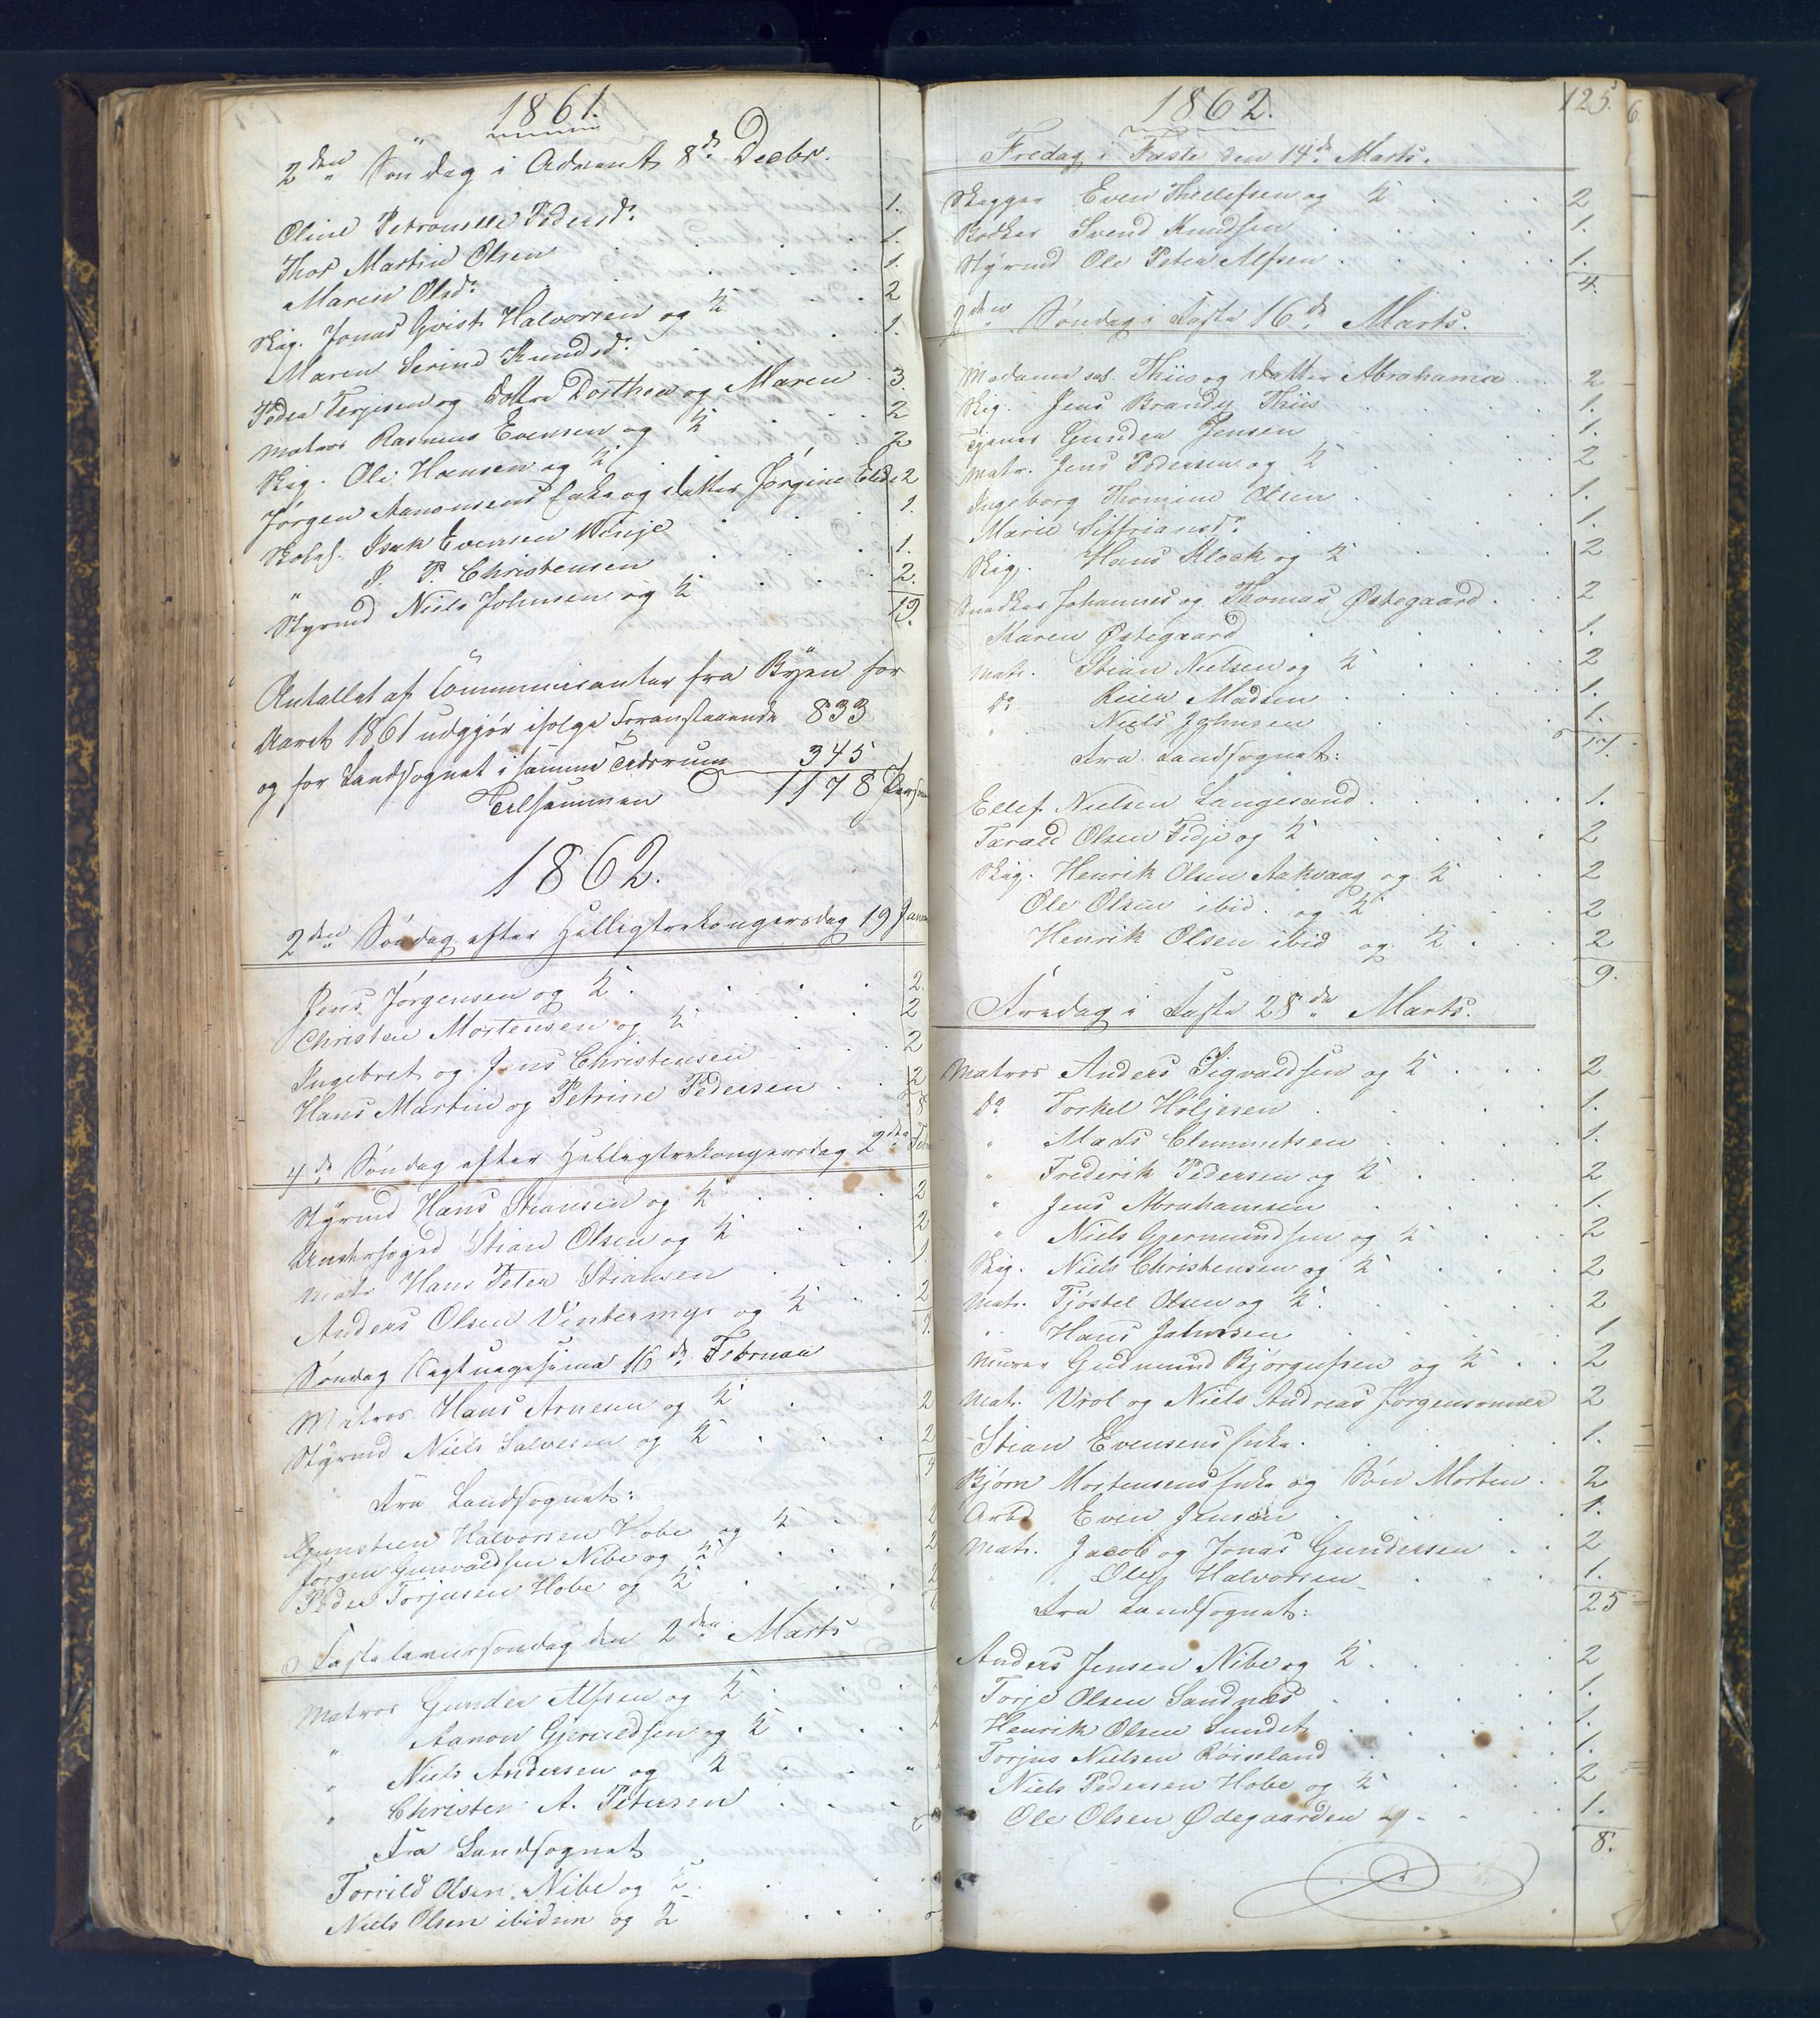 1861.
2den Søndag i Advent 8de Decbr.
Oline Petronelle Pedersd: 1.
Thor Martin Olsen 1.
Maren Olsd: 1.
Skig. Jonas Qvist Halvorsen og K 2
Maren Serine Knudsd: 1.
Peder Terjesen og Døttre Dorthea og Maren 3.
Matros Rasmus Evensen og K 2
Skig. Ole Hansen og K 2
Jørgen Aanonsens Enke og Datter Jørgine Elise 2
Isak Evensen Vinje 1.
" P. P. Christensen 1.
Styrmd Niels Johnsen og K 2.
19.
Antallet af Communicanter fra Byen for
Aaret 1861 udgjør ifølge Foranstaaende 833
og for Landsognet i samme Tidsrum 345
Tilsammen 1178
1862.
2den Søndag efter Helligtrekongersdag 19
Jens Jørgensen og K 2.
Christen Mortensen og K 2
Ingebret og Jens Christensen 2
Hans Martin og Petrine Pedersen 2
8
4de Søndag efter Helligtrekongersdag 2den
Styrmd Hans Stiansen og K 2
Stian Olsen og K 2
Matr Hans Peter Stiansen 1.
Anders Olsen Vintermyr og K 2
7.
Søndag 16de Februar
Matros Hans Arnesen og K 2
Styrmd Niels Salvesen og K 2
4
Fra Landsognet:
Gunsteen Halvorsen Hobe og K 2
Jørgen Gunvaldsen Nibe og K 2
Peder Torjusen Hobe og K 2
Fastelavnssøndag den 2den Marts
Matros Gunder Alfsen og K
" Aanon Gjeruldsen og K
" Niels Andersen og K
" Christen A. Petersen
Fra Landsognet
Torrild Olsen Nibe og K
Niels Olsen ibidem og K
1862.
125.
Fredag i Faste den 14de Marts.
Skegger Even Thellefsen og K 2
Bødker Svend Knudsen 1.
Styrmd Ole Peter Alfsen 1.
4.
2den Søndag i Faste 16de Marts.
Madame sal. Thiis og Datter Abrahamea 2
Skig. Jens Brandy Thiis 1.
Tjener Gunder Jensen 1.
Matr. Jens Pedersen og K 2
Ingeborg Thomine Olsen 1.
Marie Siffriansd: 1.
Skig. Hans Klock og K 2
Snedker Johannes og Thomas Østegaard 2
Maren Østegaard 1.
Matr. Stian Nielsen og K 2
Do Madsen 1.
" Niels Johnsen 1.
17.
Fra Landsognet:
Ellef Nielsen Langesand 1.
Tarald Olsen Fidje og K 2
Skig. Henrik Olsen Aakvaag og K 2
Ole Olsen ibid. og K 2
Henrik Olsen ibid og K 2
9.
Fredag i Faste 28de Marts.
Matros Anders Sigvaldsen og K 2
Do Torkel Høljesen 1.
" Mads Clemmetsen 1.
" Frederik Pedersen og K 2
" Jens Abrahamsen 1.
" Niels Gjermundsen og K 2
Skig. Niels Christensen og K 2
Matr. Tjøstel Olsen og K 2
" Hans Johnsen 1
Murer Gudmund Bjørgufsen og K 2
Matr. Vrol og Niels Andreas Jørgensønner 2
Stian Evensens Enke 1.
Bjørn Mortensens Enke og Søn Morten 2
Arbd Even Jensen 1.
Matr. Jacob og Jonas Gundersen 2
" Ole Halvorsen 1.
25
Fra Landsognet:
Anders Jensen Nibe og K 2
Torje Olsen Sandnæs 1.
Henrik Olsen Sundet 1.
Torjus Nielsen Røisland 1.
Niels Pedersen Hobe og K 2
Ole Olsen Ødegaarden 1.
8.